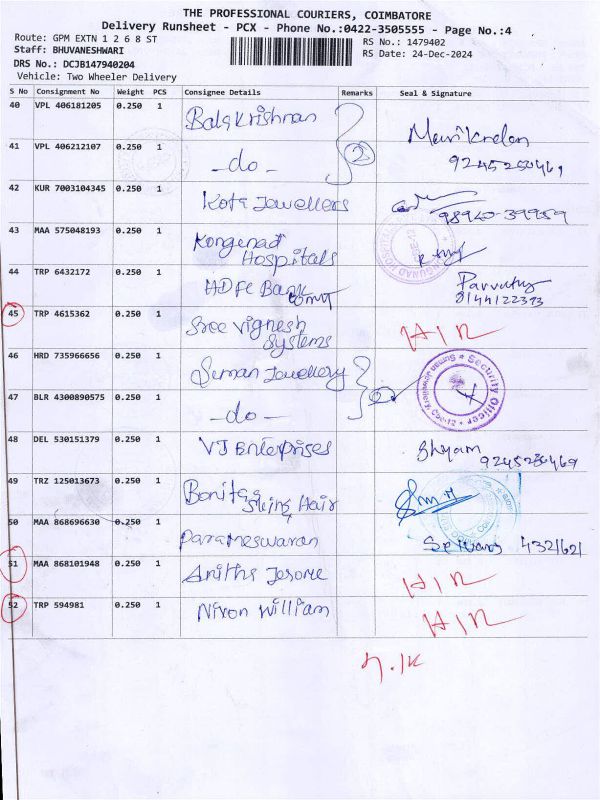 THE PROFESSIONAL COURIERS, COIMBATORE
Delivery Runsheet - PCX - Phone No.:0422-3505555 - Page No.:4
Route: GPM EXTN 1 2 6 8 ST
RS No.: 1479402
Staff: BHUVANESHWARI
RS Date: 24-Dec-2024
DRS No.: DCJB147940204
Vehicle: Two Wheeler Delivery
S No Consignment No Weight PCS Consignee Details Remarks Seal & Signature
40 VPL 406181205 0.250 1 Balakrishnan
41 VPL 406212107 0.250 1 -do- 2
42 KUR 7003104345 0.250 1 Kota Jewellers 98940-39959
43 MAA 575048193 0.250 1 Kongenad Hospitals
44 TRP 6432172 0.250 1 HDFC Bank Parvathy
45 TRP 4615362 0.250 1 Sree Vignesh Systems HIR
46 HRD 735966656 0.250 1 Suman Jewellery
47 BLR 4300890575 0.250 1 -do- 2 Security Officer
48 DEL 530151379 0.250 1 VJ Enterprises Shyam
49 TRZ 125013673 0.250 1 Bonitaa Hair
50 MAA 868696630 0.250 1 Parameswaran
51 MAA 868101948 0.250 1 Anitha Jerome HIR
52 TRP 594981 0.250 1 Nixon William HIR